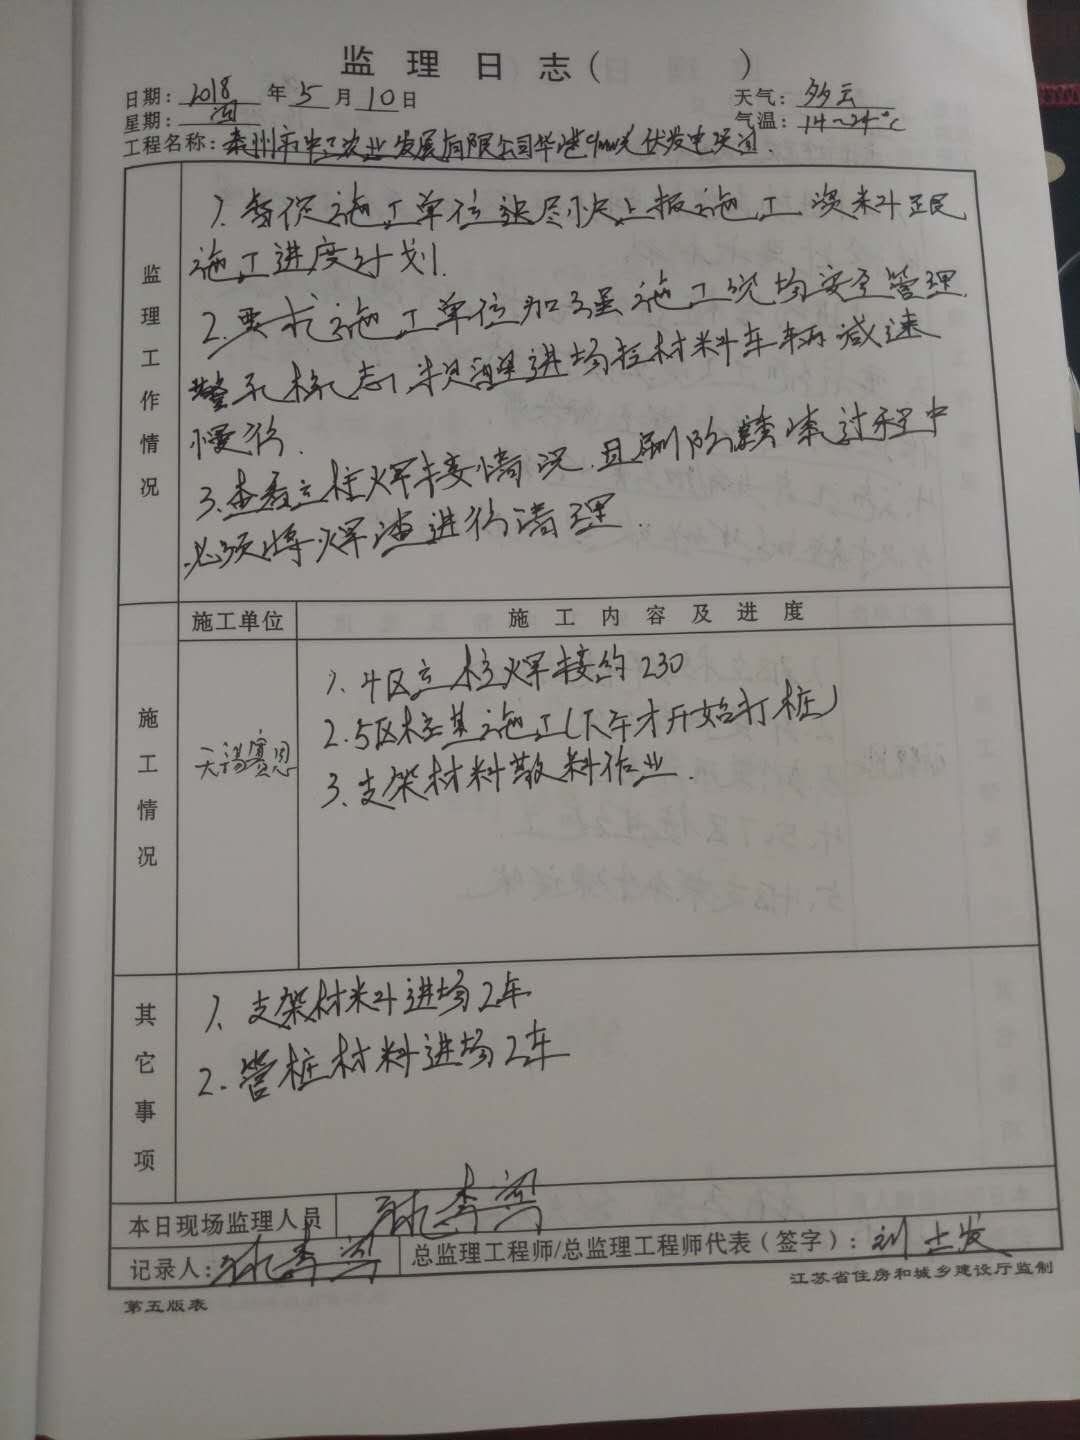 监 理 日 志 (    )
日期: 2018 年 5 月 10 日 天气: 多云
星期: 四 气温: 14~24℃
工程名称: 泰州市中工农业发展有限公司华港9mw光伏发电项目.
监理工作情况
1. 督促施工单位尽快上报施工资料跟
施工进度计划.
2. 要求施工单位加强施工现场安全管理
警示标志, 提醒进场拉材料车辆减速
慢行.
3. 查看立柱焊接情况, 且刷防腐漆过程中
必须将焊渣进行清理.
施工情况
施工单位 施工内容及进度
1. 4区立柱焊接约230
2. 5区桩基施工(下午才开始打桩)
天 3. 支架材料散料作业.
其它事项
1. 支架材料进场2车
2. 管桩材料进场2车
本日现场监理人员
记录人: 总监理工程师/总监理工程师代表(签字): 刘
江苏省住房和城乡建设厅监制
第五版表